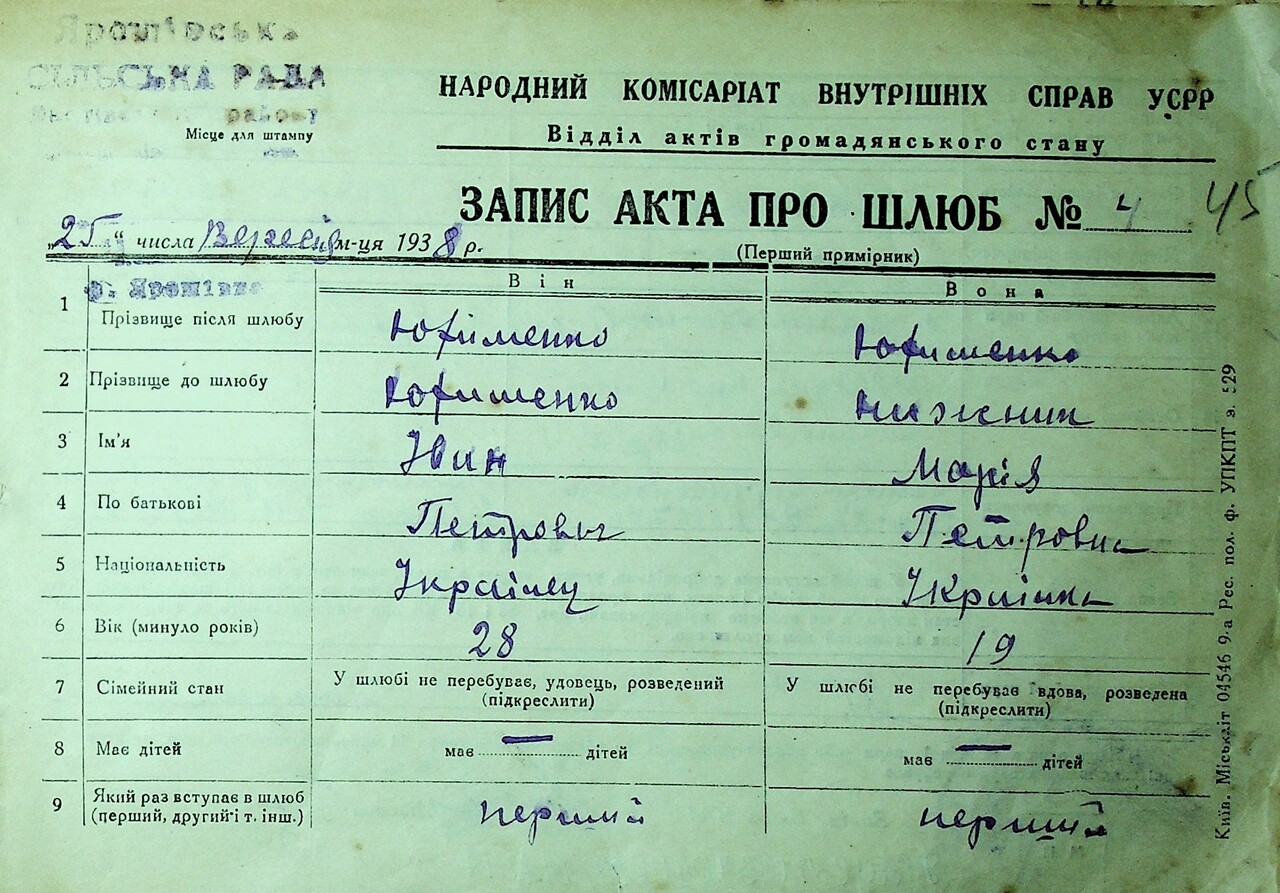 Ярошівська
СІЛЬСЬКА РАДА
району
Місце для штампу
НАРОДНИЙ КОМІСАРІАТ ВНУТРІШНІХ СПРАВ УСРР
Відділ актів громадянського стану
ЗАПИС АКТА ПРО ШЛЮБ № 4 45
„25“ числа Вересня м-ця 1938 р.
(Перший примірник)
с. Ярошівка
Він Вона
1 Прізвище після шлюбу Юфименко Юфименко
2 Прізвище до шлюбу Юфименко Нижник
3 Ім'я Іван Марія
4 По батькові Петрович Петровна
5 Національність Українец Українка
6 Вік (минуло років) 28 19
7 Сімейний стан У шлюбі не перебуває, удовець, розведений (підкреслити) У шлюбі не перебуває вдова, розведена (підкреслити)
8 Має дітей має — дітей має — дітей
9 Який раз вступає в шлюб (перший, другий і т. інш.) перший перший
Київ. Міськліт 04546 9-а Рес. пол. ф. УПКПТ з. 529